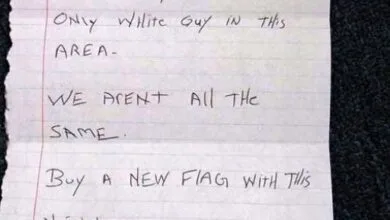 ONLY WHITE GUY IN THIS
AREA-
WE ARENT All THE
SAME.
BUY A NEW FlAG WITH THIS